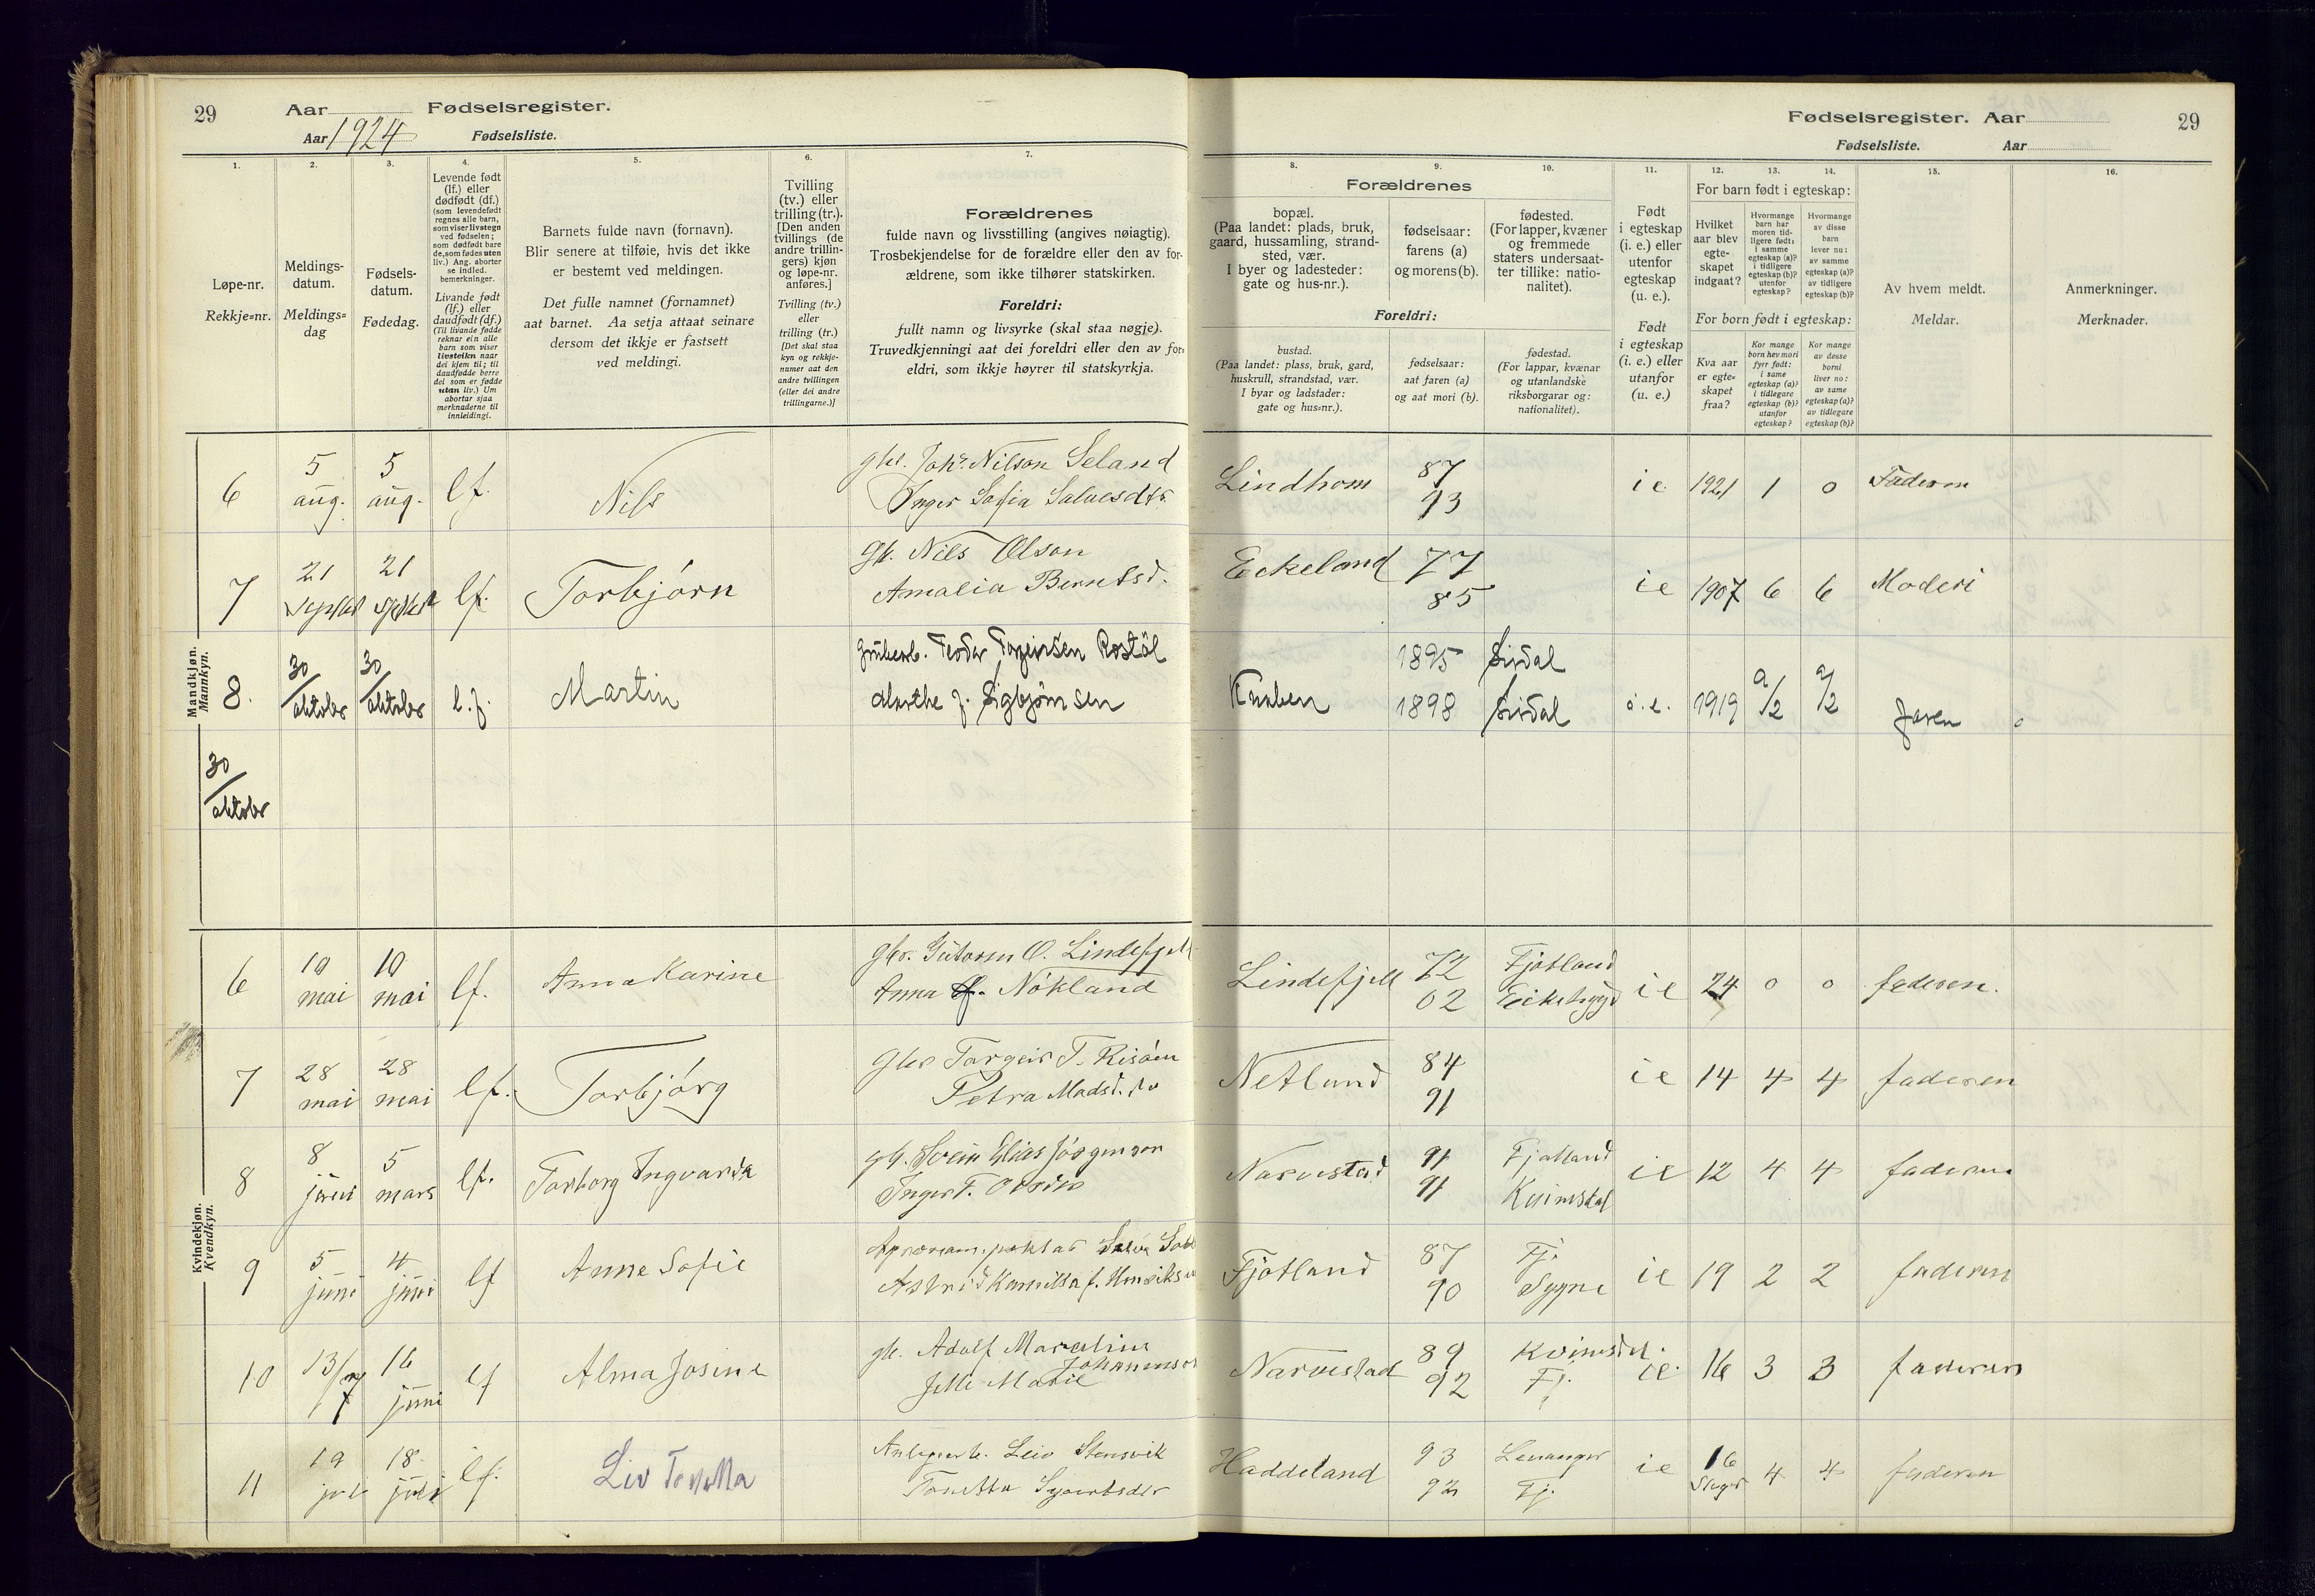 29
Aar Fødselsregister.
Aar 1924 Fødselsliste.
Fødselsregister. Aar
29
Fødselsliste. Aar
1. 2. 3. 4. 5. 6. 7. 8. 9. 10. 11. 12. 13. 14. 15. 16.
Løpe-nr.
Rekkje=nr.
Meldings-
datum.
Meldings=
dag
Fødsels-
datum.
Fødedag.
Levende født
(lf.) eller
dødfødt (df.)
(som levendefødt
regnes alle barn,
som viser livstegn
ved fødselen;
som dødfødt bare
de, som fødes uten
liv.) Ang. aborter
se indled.
bemerkninger.
Livande født
(lf.) eller
daudfødt (df.)
(Til livande fødde
reknar ein alle
barn som viser
livsteikn naar
dei kjem til; til
daudfødde berre
dei som er fødde
utan liv.) Um
abortar sjaa
merknaderne til
innleidingi.
Barnets fulde navn (fornavn).
Blir senere at tilføie, hvis det ikke
er bestemt ved meldingen.
Det fulle namnet (fornamnet)
aat barnet. Aa setja attaat seinare
dersom det ikkje er fastsett
ved meldingi.
Tvilling
(tv.) eller
trilling (tr.).
[Den anden
tvillings (de
andre trillin-
gers) kjøn
og løpe-nr.
anføres.]
Tvilling (tv.)
eller
trilling (tr.)
[Det skal staa
kyn og rekkje-
numer aat den
andre tvillingen
(eller dei andre
trillingarne.)]
Forældrenes
fulde navn og livsstilling (angives nøiagtig).
Trosbekjendelse for de forældre eller den av for-
ældrene, som ikke tilhører statskirken.
Foreldri:
fullt namn og livsyrke (skal staa nøgje).
Truvedkjenningi aat dei foreldri eller den av for-
eldri, som ikkje høyrer til statskyrkja.
Forældrenes
bopæl.
(Paa landet: plads, bruk,
gaard, hussamling, strand-
sted, vær.
I byer og ladesteder:
gate og hus-nr.).
fødselsaar:
farens (a)
og morens (b).
fødested.
(For lapper, kvæner
og fremmede
staters undersaat-
ter tillike: natio-
nalitet).
Foreldri:
bustad.
(Paa landet: plass, bruk, gard,
huskrull, strandstad, vær.
I byar og ladstader:
gate og hus=nr.).
fødselsaar:
aat faren (a)
og aat mori (b).
fødestad.
(For lappar, kvænar
og utanlandske
riksborgarar og:
nationalitet).
Født
i egteskap
(i. e.) eller
utenfor
egteskap
(u. e.).
Født
i egteskap
(i. e.) eller
utanfor
egteskap
(u. e.)
For barn født i egteskap:
Hvilket
aar blev
egte-
skapet
indgaat?
Hvormange
barn har
moren tid-
ligere født:
i samme
egteskap (a)?
i tidligere
egteskap (b)?
utenfor
egteskap?
Hvormange
av disse
barn
lever nu:
av samme
egteskap (a)?
av tidligere
egteskap (b)?
For born født i egteskap:
Kva aar
er egte=
skapet
fraa?
Kor mange
born hev mori
fyrr født:
i same
egteskap (a)?
i tidlegare
egteskap (b)?
utanfor
egteskap?
Kor mange
av desse
borni
liver no:
av same
egteskap (a)?
av tidlegare
egteskap (b)?
Av hvem meldt.
Meldar.
Anmerkninger.
Merknader.
Mandkjøn.
Mannkyn.
6 5 aug. 5 aug. lf. Nils
gbr. Johs. Nilson Seland
Inger Sofia Salvesdtr.
Lindhom 87 93 i e 1921 1 0 Faderen
7 21 Septbr 21 Septbr lf. Torbjørn
Gb. Nils Olson
Amalia Berntsd.
Eekeland 77 85 i e 1907 6 6 Moderi
8. 30/oktobr 30/oktobr l.f. Martin
Gruberb. Teodor Rostøl
Marthe f. Sigbjørnsen
Knaben 1895 Sirdal
1898 Sirdal i.e. 1919 a/2 a/2 faren
30/oktobr
Kvindekjøn.
Kvendkyn.
6 10 mai 10 mai lf. Anna Karine
gbr. Gutorm O. Lindefjell
Anna Nøkland
Lindefjell 72 Fjotland
02 Eikebygd i e 24 0 0 faderen.
7 28 mai 28 mai lf. Torbjørg
gbr Torgeir T. Risøen
Petra Madsd.
Netland 84 91 i e 14 4 4 faderen
8 8 juni 5 mars lf. Torborg Ingvarda
gb. Svein Elias Jørgenson
Inger T.
Narvestad 91 Fjotland
91 Kvinesdal i e 12 4 4 faderen
9 5 juni 4 juni lf Anne Sofie
Astrid Kamilla f. Henriksen
Fjotland 87 Fj.
90 Sygne i e 19 2 2 faderen
10 13/7 16 juni lf Alma Josine
gb. Adolf Marcelius
Johannessen
Marie
Narvestad 89 Kvinesdal.
92 Fj. ie. 16 3 3 faderen
11 19 juli 18. juli lf. Liv Tonetta
Anlegsarb. Leiv Stensvik
Tonetta
Haddeland 93 Levanger
92 Fj. i e 16 4 4 faderen